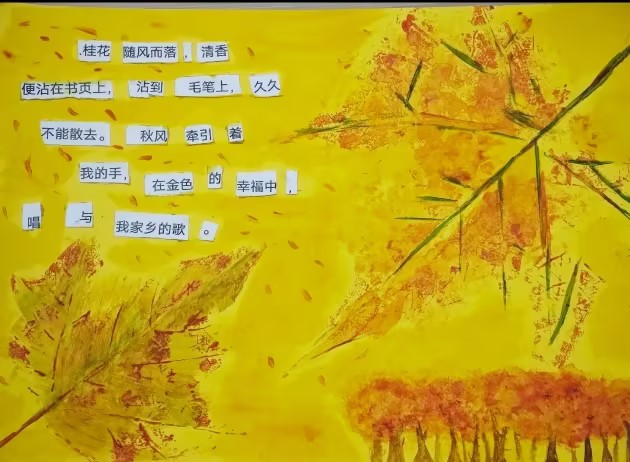 .桂花 随风而落，清香
便沾在书页上， 沾到 毛笔上，久久
不能散去。 秋风 牵引 着
我的手， 在金色 的 幸福中，
唱 与 我家乡的歌 。